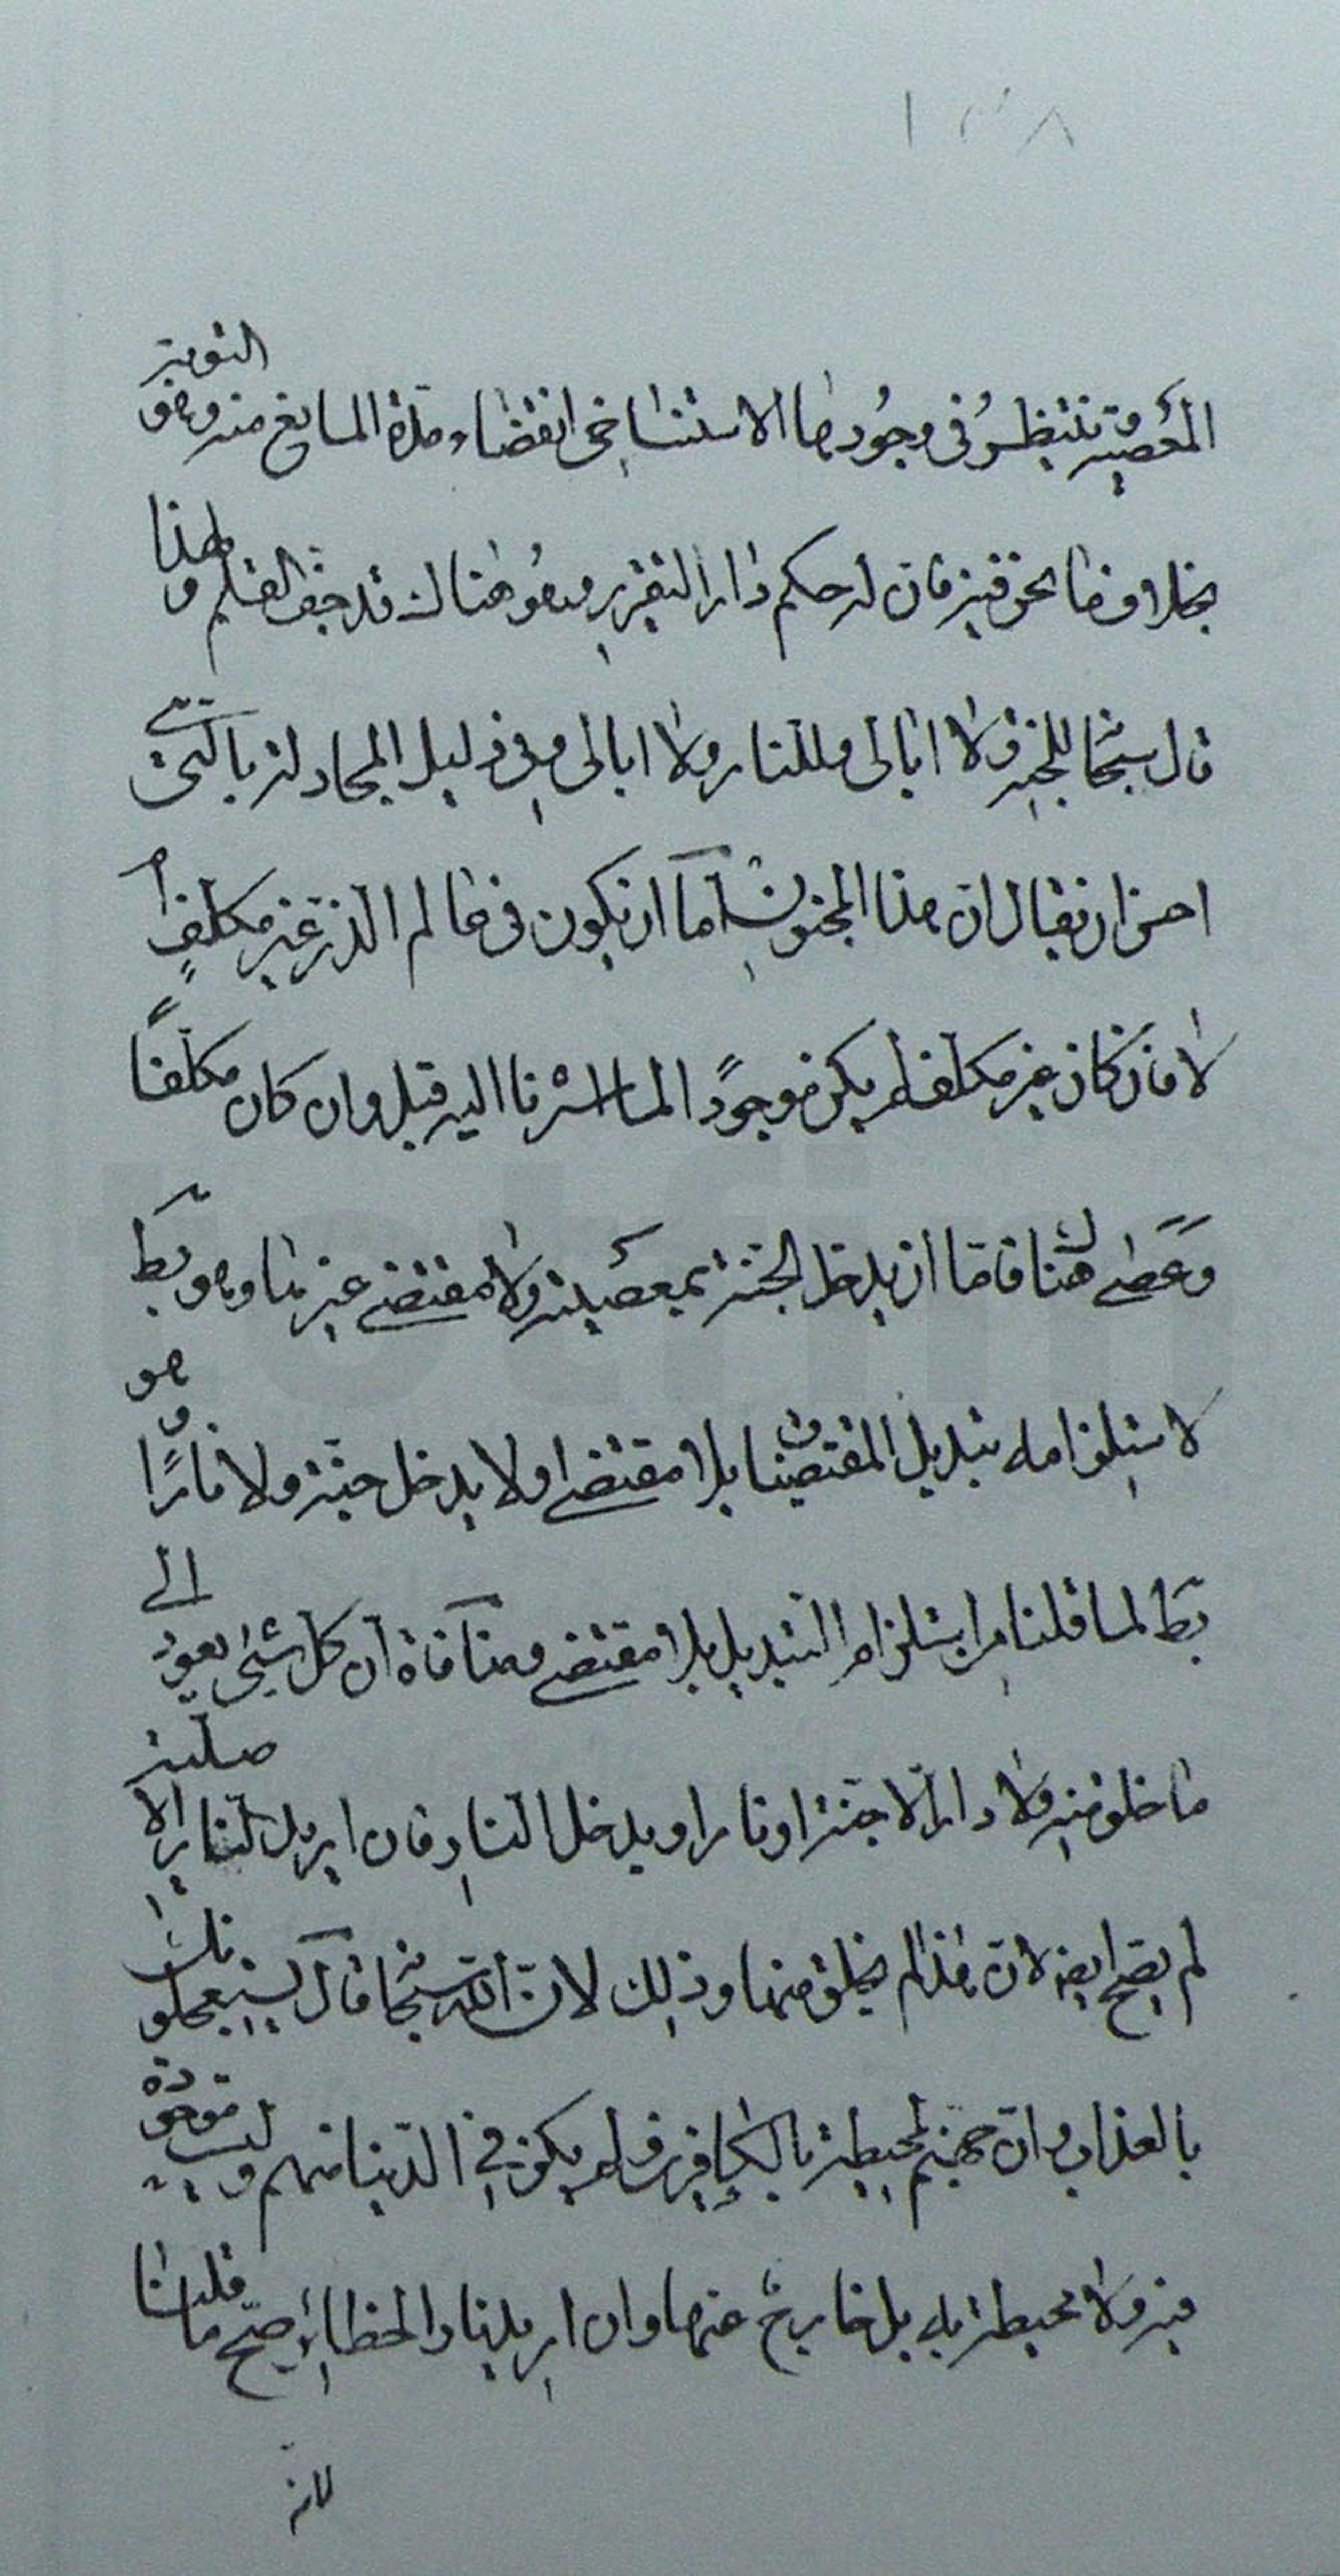 ١٣٨
المعصية تنتظر في وجودها الاستنساخي انقضاء مدة المانع منه وهو التوبة
بخلاف ما نحن فيه فان له حكم دار التقرير وهو هناك قد جف القلم ولهذا
قال سبحانه للجنة ولا ابالى وللنار ولا ابالى وفي دليل المجادلة بالتي هي
احسن ان يقال ان هذا المجنون اما ان يكون في عالم الذر غير مكلف ام
لا فان كان غير مكلف لم يكن موجودًا لما اشرنا اليه قبل وان كان مكلفًا
وعصى هناك فاما ان يدخل الجنة بمعصيته ولا مقتضى غيرها وهو بط
لاستلزامه تبديل المقتضيات بلا مقتضى او لا يدخل جنة ولا نارًا وهو
بط لما قلنا من استلزام التبديل بلا مقتضى ومنافاة ان كل شيء يعود الى
ما خلق منه ولا دار الا جنة او نار او يدخل النار فان اريد النار الاصلية
لم يصح ايضا لان هذا لم يخلق منها وذلك لان الله سبحانه قال يستعجلونك
بالعذاب وان جهنم لمحيطة بالكافرين فلم يكن في الدنيا منهم وليست موجودة
فيه ولا محيطة به بل خارج عنها وان اريد نار الحظاير صح ما قلنا
لانه